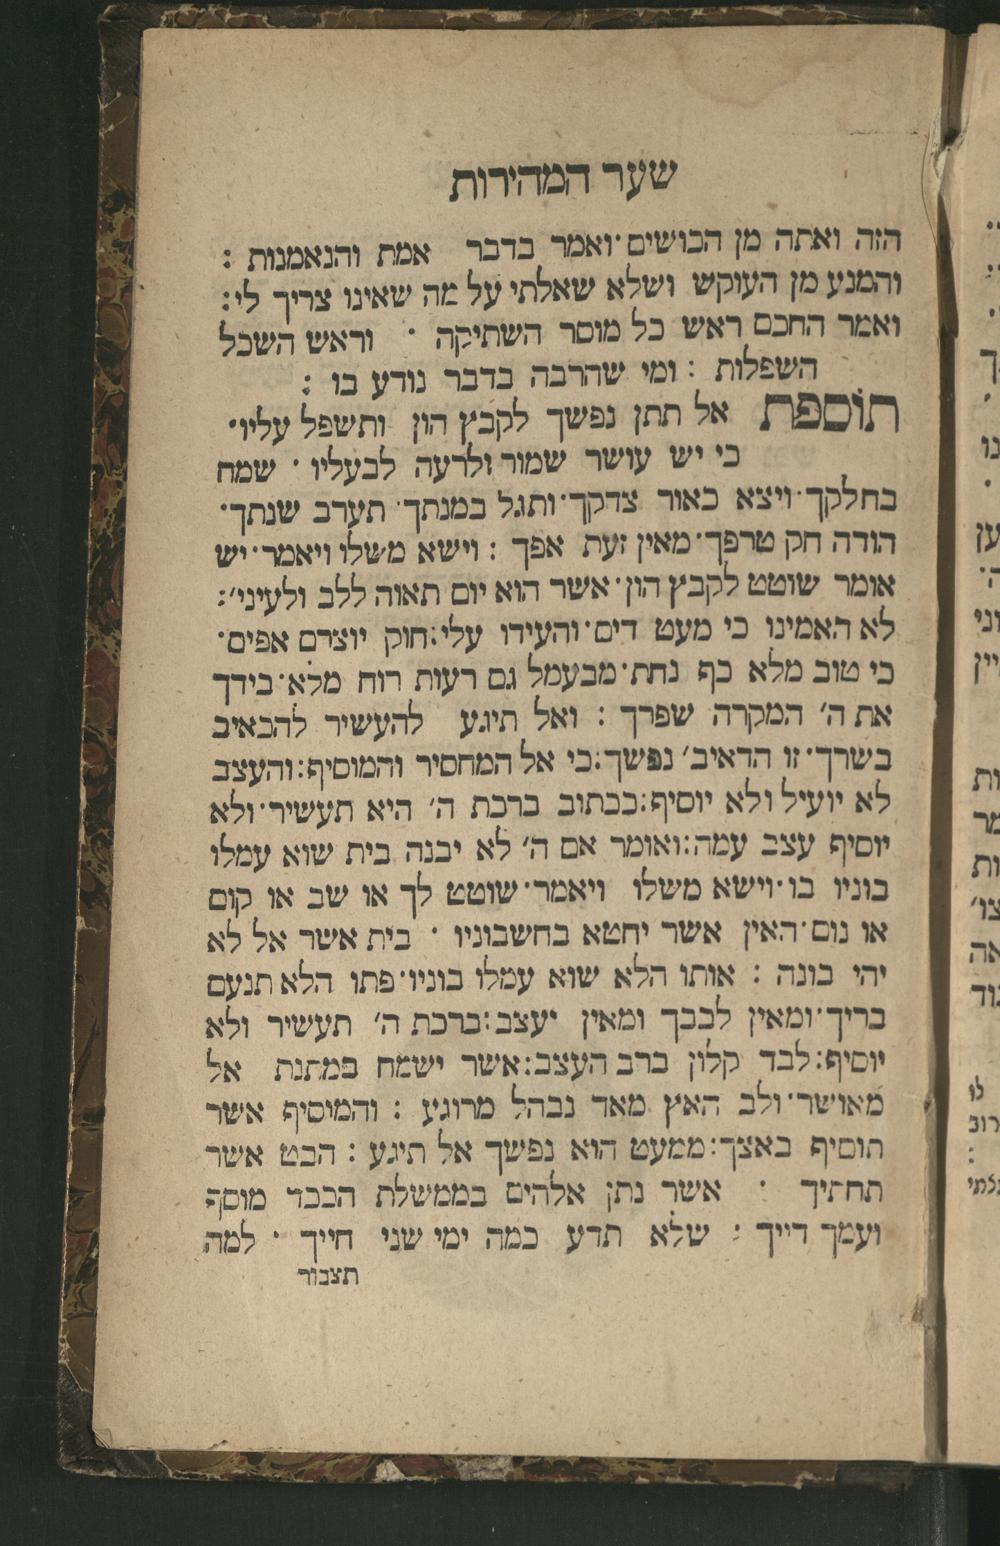 שער המהירות
הזה ואתה מן הכושים·ואמר בדבר אמת והנאמנות :
והמנע מן העוקש ושלא שאלתי על מה שאינו צריך לי:
ואמר החכם ראש כל מוסר השתיקה · וראש השכל
השפלות : ומי שהרבה בדבר נודע בו :
תוספת אל תתן נפשך לקבץ הון ותשפל עליו·
כי יש עושר שמור ולרעה לבעליו · שמח
בחלקך·ויצא כאור צדקך·ותגל במנתך· תערב שנתך·
הודה חק טרפך·מאין זעת אפך : וישא משלו ויאמר·יש
אומר שוטט לקבץ הון·אשר הוא יום תאוה ללב ולעיני׳:
לא האמינו כי מעט דים·והעידו עלי:חוק יוצרם אפים·
כי טוב מלא כף נחת·מבעמל גם רעות רוח מלא·בידך
את ה׳ המקרה שפרך : ואל תיגע להעשיר להכאיב
בשרך·זו הדאיב׳ נפשך:כי אל המחסיר והמוסיף:והעצב
לא יועיל ולא יוסיף:ככתוב ברכת ה׳ היא תעשיר·ולא
יוסיף עצב עמה:ואומר אם ה׳ לא יבנה בית שוא עמלו
בוניו בו·וישא משלו ויאמר·שוטט לך או שב או קום
או נום·האין אשר יחטא בחשבוניו · בית אשר אל לא
יהי בונה : אותו הלא שוא עמלו בוניו·פתו הלא תנעם
בריך·ומאין לבבך ומאין יעצב:ברכת ה׳ תעשיר ולא
יוסיף: לבד קלון ברב העצב:אשר ישמח במתנת אל
מאושר·ולב האץ מאד נבהל מרוגע : והמוסיף אשר
תוסיף באצך:ממעט הוא נפשך אל תיגע : הבט אשר
תחתיך · אשר נתן אלהים בממשלת הכבד מוסף
ועמך דייך : שלא תדע כמה ימי שני חייך · למה
תצבור